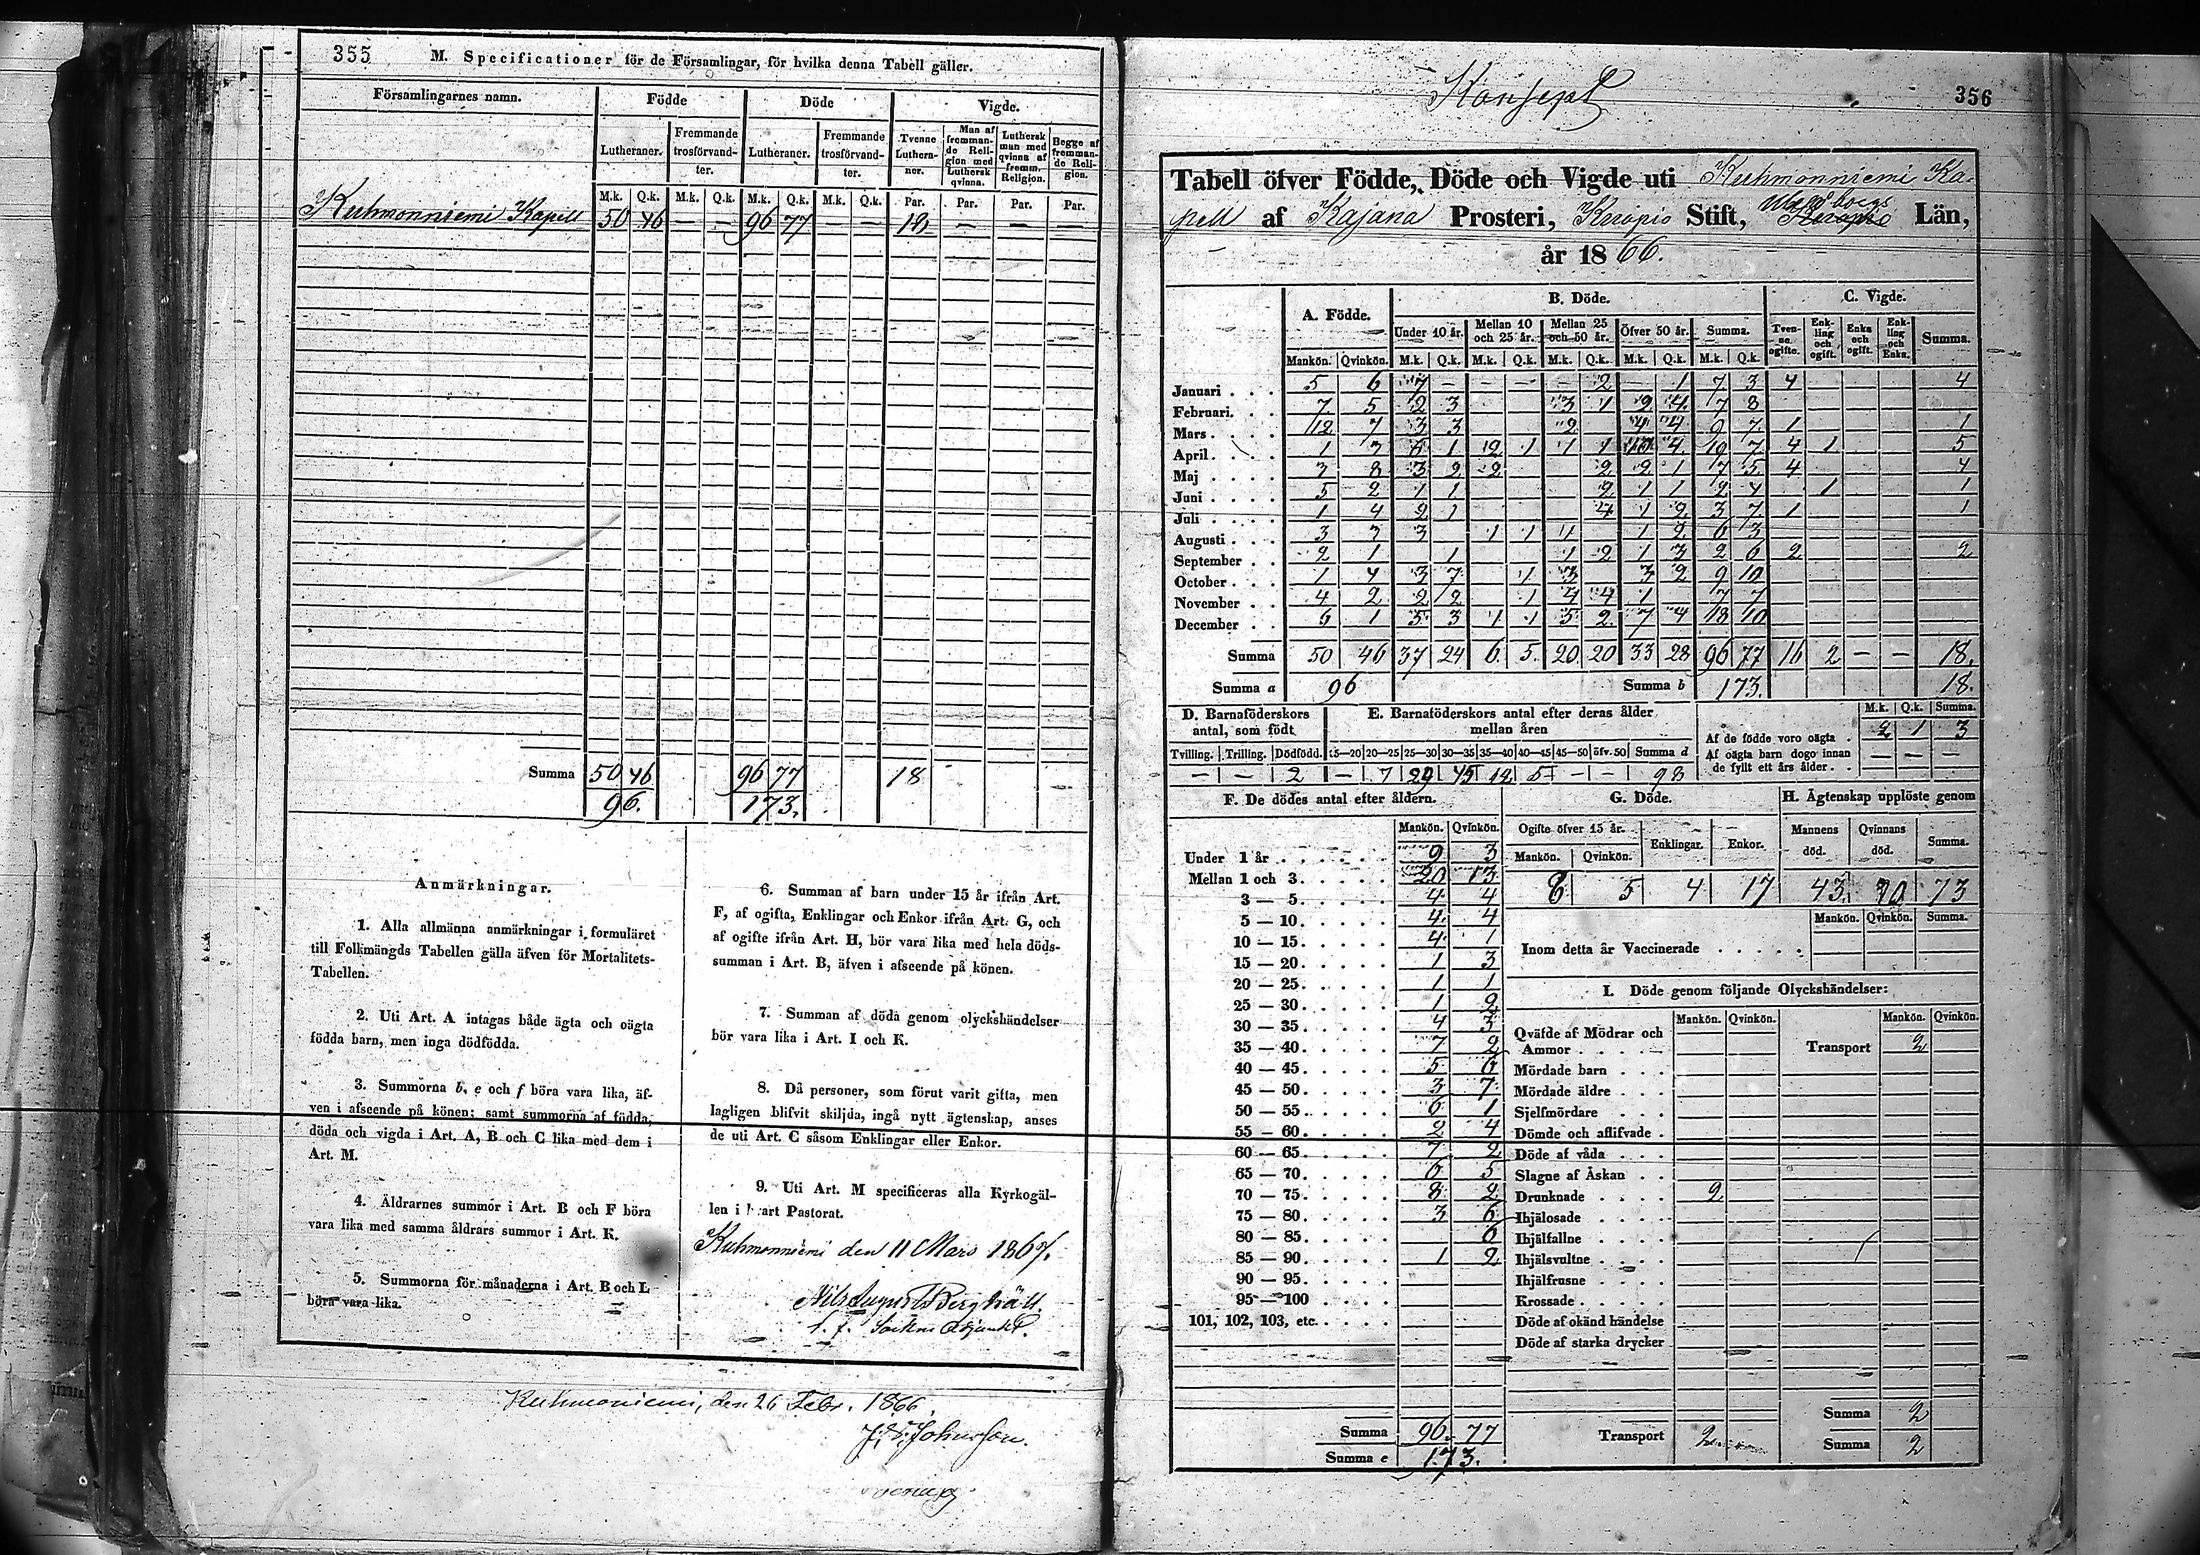 355 M. Specificationer för de Församlingar, för hvilka denna Tabell gäller.
Församlingarnes namn. Födde Döde Vigde.
Lutheraner. Fremmande trosförvandter. Lutheraner. Fremmande trosförvandter. Tvenne Lutheraner. Man af fremmande Religion med Luthersk qvinna. Luthersk man med qvinna af fremm. Religion. Begge af fremmande Religion.
M.k. Q.k. M.k. Q.k. M.k. Q.k. M.k. Q.k. Par. Par. Par. Par.
Kuhmonniemi Kapell 50 46 — — 96 77 — — 18 — — —
Summa 50 46 96 77 18
96. 173.
Anmärkningar.
1. Alla allmänna anmärkningar i formuläret
till Folkmängds Tabellen gälla äfven för Mortalitets-
Tabellen.
2. Uti Art. A intagas både ägta och oägta
födda barn, men inga dödfödda.
3. Summorna b, e och f böra vara lika, äf-
ven i afseende på könen; samt summorna af födda,
döda och vigda i Art. A, B och C lika med dem i
Art. M.
4. Åldrarnes summor i Art. B och F böra
vara lika med samma åldrars summor i Art. K.
5. Summorna för månaderna i Art. B och L
böra vara lika.
6. Summan af barn under 15 år ifrån Art.
F, af ogifta, Enklingar och Enkor ifrån Art. G, och
af ogifte ifrån Art. H, bör vara lika med hela döds-
summan i Art. B, äfven i afseende på könen.
7. Summan af döda genom olyckshändelser
bör vara lika i Art. I och K.
8. Då personer, som förut varit gifta, men
lagligen blifvit skiljda, ingå nytt ägtenskap, anses
de uti Art. C såsom Enklingar eller Enkor.
9. Uti Art. M specificeras alla Kyrkogäl-
len i hvart Pastorat.
Kuhmonniemi den 11 Mars 1867.
Nils August Berghäll.
Kuhmoniemi, den 26 Febr. 1866.
Johnsson.
Konsept
356
Tabell öfver Födde, Döde och Vigde uti Kuhmonniemi Ka-
pell af Kajana Prosteri, Kuopio Stift, Uleåborgs Län,
år 1866.
A. Födde. B. Döde. C. Vigde.
Under 10 år. Mellan 10 och 25 år. Mellan 25 och 50 år. Öfver 50 år. Summa. Tvenne ogifte. Enkling och ogift. Enka och ogift. Enkling och Enka. Summa.
Mankön. Qvinkön. M.k. Q.k. M.k. Q.k. M.k. Q.k. M.k. Q.k. M.k. Q.k.
Januari 5 6 7 — — — — 2 — 1 7 3 4 4
Februari 7 5 2 3 3 1 2 4 7 8
Mars 12 7 3 3 2 4 4 9 7 1 1
April 1 3 6 1 2 1 1 1 10 4 19 7 4 1 5
Maj 3 8 3 2 2 2 2 1 7 5 4 4
Juni 5 2 1 1 2 1 1 2 4 1 1
Juli 1 4 2 1 4 1 2 3 7 1 1
Augusti 3 3 3 1 1 1 1 2 6 3
September 2 1 1 1 2 1 3 2 6 2 2
October 1 4 3 7 1 3 3 2 9 10
November 4 2 2 2 1 4 4 1 7 7
December 6 1 5 3 1 1 5 2 7 4 18 10
Summa 50 46 37 24 6. 5. 20. 20 33 28 96 77 16 2 — — 18.
Summa a 96 Summa b 173. 18.
D. Barnaföderskors antal, som födt E. Barnaföderskors antal efter deras ålder mellan åren
Tvilling. Trilling. Dödfödd. 15—20 20—25 25—30 30—35 35—40 40—45 45—50 öfv. 50 Summa d
— — 2 — 7 29 45 12 5 — — 98
M.k. Q.k. Summa.
Af de födde voro oägta . 2 1 3
Af oägta barn dogo innan de fyllt ett års ålder. . — — —
F. De dödes antal efter åldern. G. Döde. H. Ägtenskap upplöste genom
Mankön. Qvinkön.
Under 1 år 9 3
Mellan 1 och 3. 20 13
3 — 5. 4 4
5 — 10. 4 4
10 — 15. 4 1
15 — 20. 1 3
20 — 25. 1 1
25 — 30. 1 2
30 — 35. 4 3
35 — 40. 7 2
40 — 45. 5 6
45 — 50. 3 7
50 — 55. 6 1
55 — 60. 2 4
60 — 65. 7 2
65 — 70. 6 5
70 — 75. 8 2
75 — 80. 3 6
80 — 85. 6
85 — 90. 1 2
90 — 95.
95 — 100
101, 102, 103, etc.
Summa 96 77
Summa e 173.
Ogifte öfver 15 år. Enklingar. Enkor. Mannens död. Qvinnans död. Summa.
Mankön. Qvinkön.
6 5 4 17 43. 30 73
Mankön. Qvinkön. Summa.
Inom detta år Vaccinerade
I. Döde genom följande Olyckshändelser:
Mankön. Qvinkön. Mankön. Qvinkön.
Qväfde af Mödrar och Ammor Transport 2
Mördade barn
Mördade äldre
Sjelfmördare
Dömde och aflifvade
Döde af våda
Slagne af Åskan
Drunknade 2
Ihjälosade
Ihjälfallne
Ihjälsvultne
Ihjälfrusne
Krossade
Döde af okänd händelse
Döde af starka drycker
Summa 2
Transport 2 Summa 2